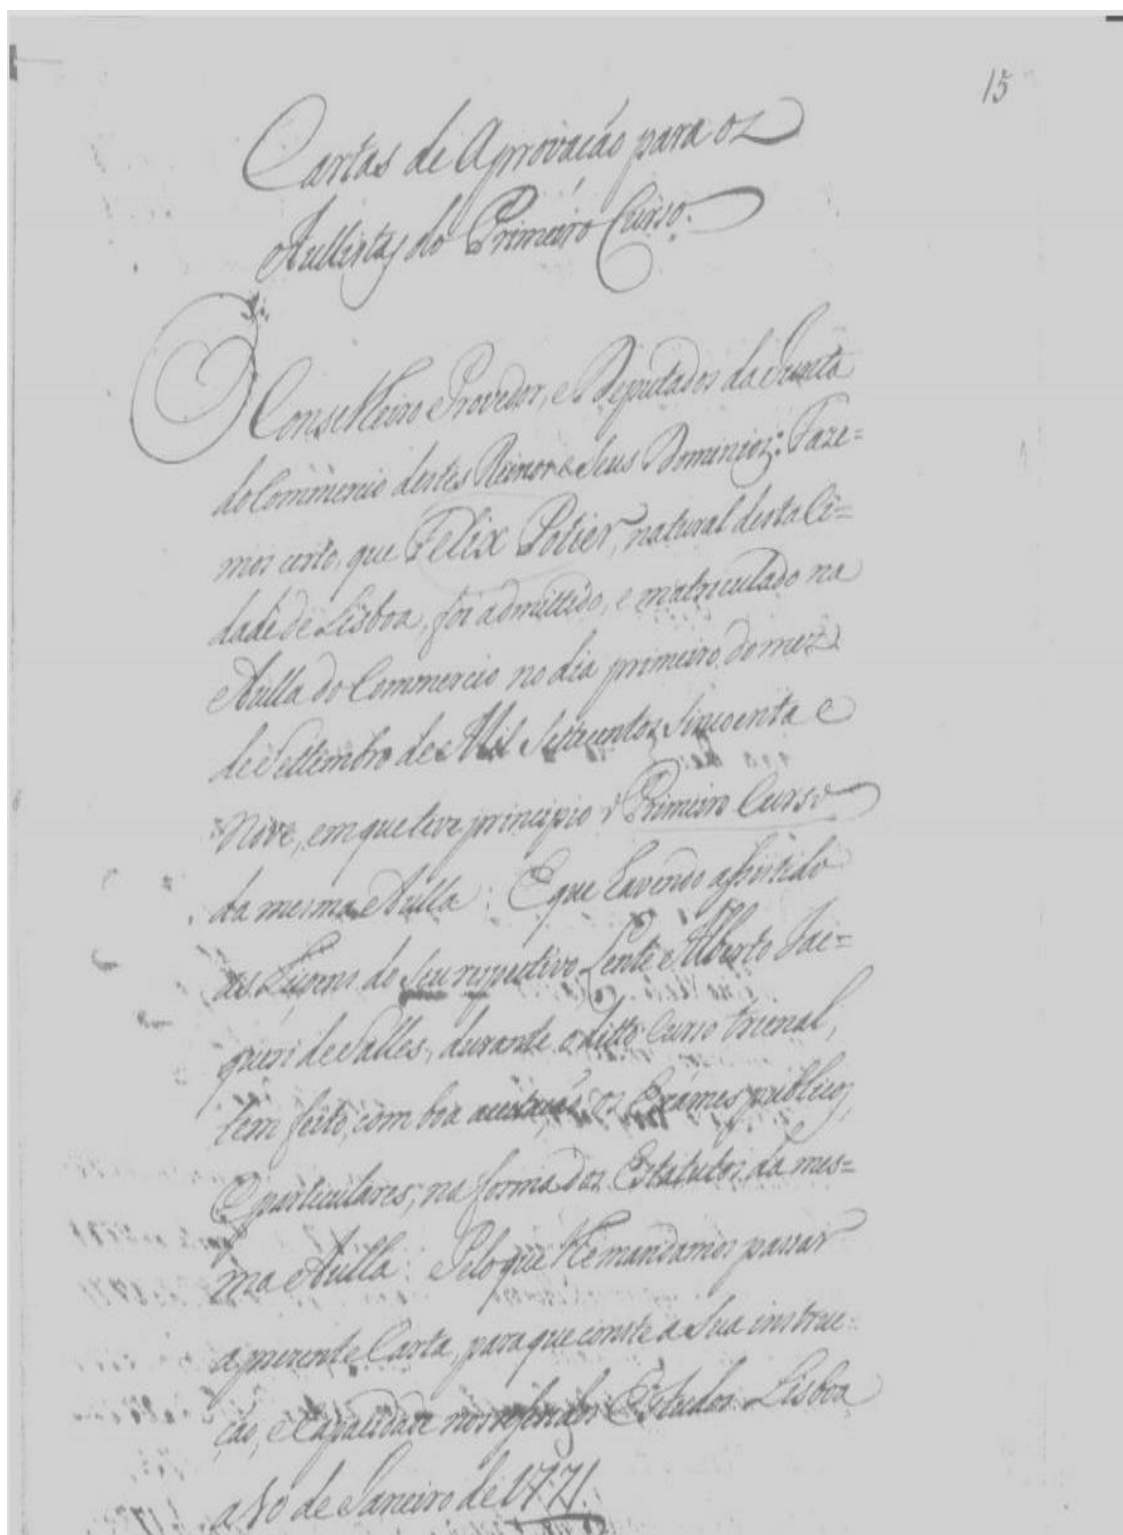 15
Cartas de Aprovação para oz
Aullistas do Primeiro Curso.
O Conselheiro Provedor, e Deputados da Junta
do Commercio destes Reinos e Seus Dominios: Faze=
mos certo, que Felix Potier, natural desta Ci=
dade de Lisboa, foi admittido, e matriculado na
Aulla do Commercio no dia primeiro do mez
de Settembro de Mil Settecentos Sincoenta e
Nove, em que teve principio o Primeiro Curso
da mesma Aulla: E que havendo assistido
as Liçoens do seu respectivo Lente Alberto Jac=
queri de Salles, durante o ditto Curso trienal,
tem feito, com boa os Exames publicos,
e particulares, na forma dos Estatutos da mes=
ma Aulla: Pelo que lhe mandamos passar
a prezente Carta, para que conste a Sua instruc=
ção, e Capacidade nos referidos Estudos. Lisboa
a 10 de Janeiro de 1771.